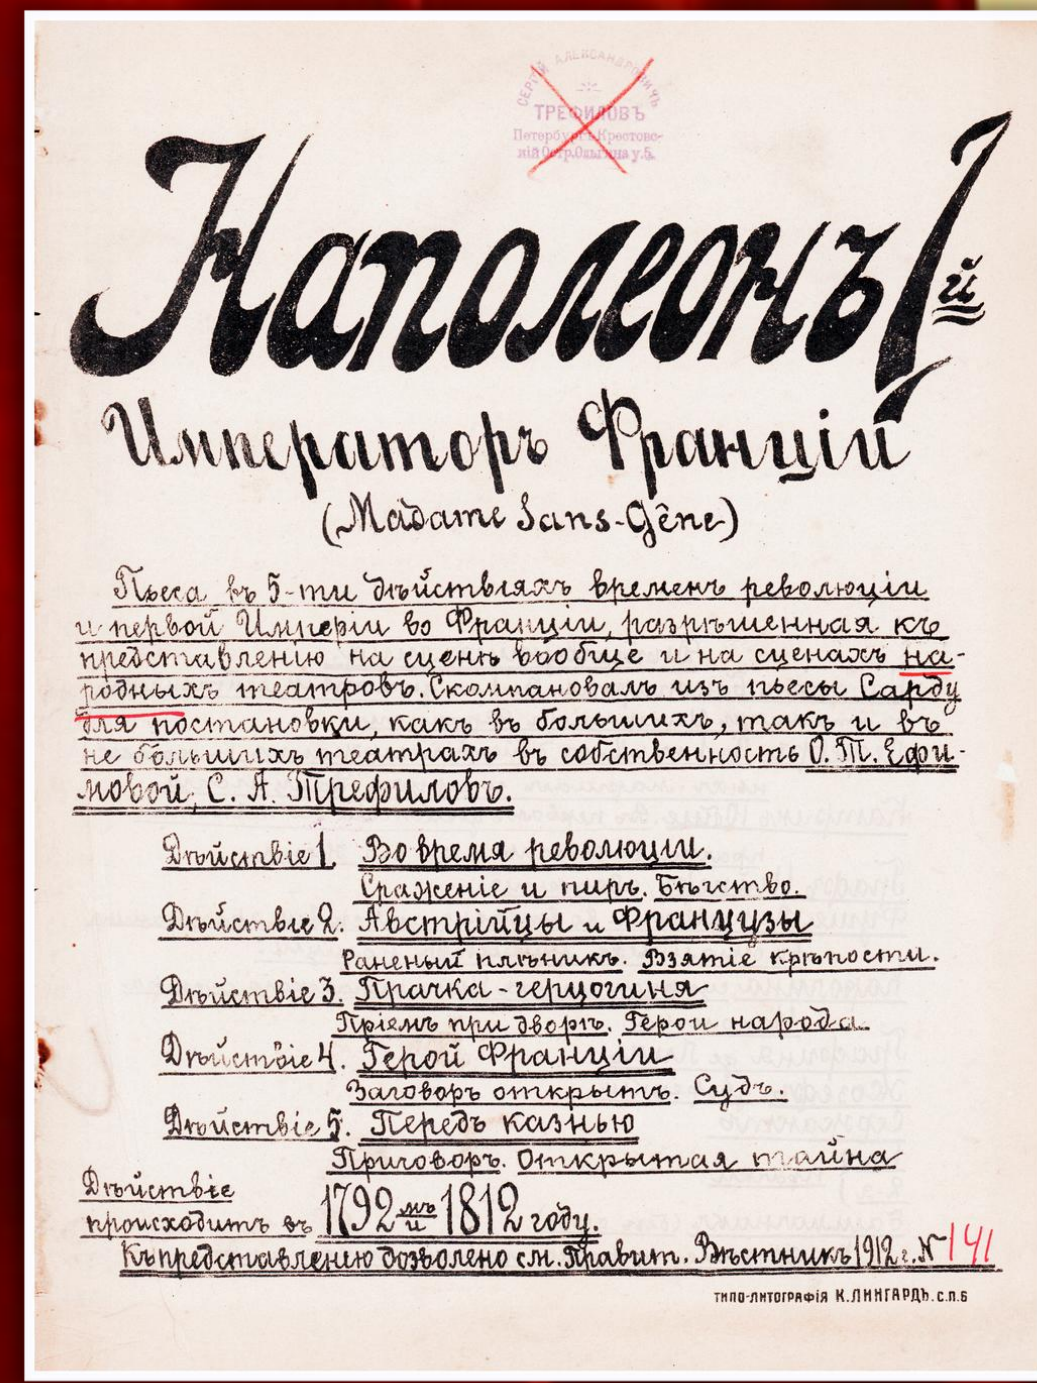 СЕРГѢЙ АЛЕКСАНДРОВИЧЪ
ТРЕФИЛОВЪ
Петербургъ Крестовс-
кій Остр. Ольгина у. 5.
Наполеонъ I й
Императоръ Франціи
(Madame Sans-Gêne)
Пьеса въ 5-ти дѣйствіяхъ временъ революціи
и первой Имперіи во Франціи, разрѣшенная къ
представленію на сценѣ вообще и на сценахъ на-
родныхъ театровъ. Скомпановалъ изъ пьесы Сарду
для постановки, какъ въ большихъ, такъ и въ
не большихъ театрахъ въ собственность О. Т. Ефи-
мовой, С. А. Трефиловъ.
Дѣйствіе 1. Во время революціи.
Сраженіе и пиръ. Бѣгство.
Дѣйствіе 2. Австрійцы и Французы
Раненый плѣникъ. Взятіе крѣпости.
Дѣйствіе 3. Прачка-герцогиня
Пріемъ при дворѣ. Герои народа.
Дѣйствіе 4. Герой Франціи.
Заговоръ открытъ. Судъ.
Дѣйствіе 5. Передъ казнью
Приговоръ. Открытая тайна
Дѣйствіе
происходитъ въ 1792 мъ и 1812 году.
Къ представленію дозволено см. Правит. Вѣстникъ 1912 г. № 141
ТИПО-ЛИТОГРАФІЯ К. ЛИНГАРДЪ. С.П.Б